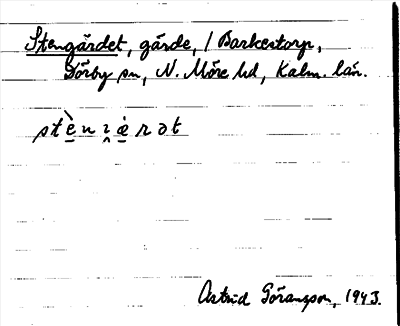 Stengärdet, gärde, / Barkestorp,
Dörby sn, N. Möre hd, Kalm. län.
Astrid Göransson, 1943.